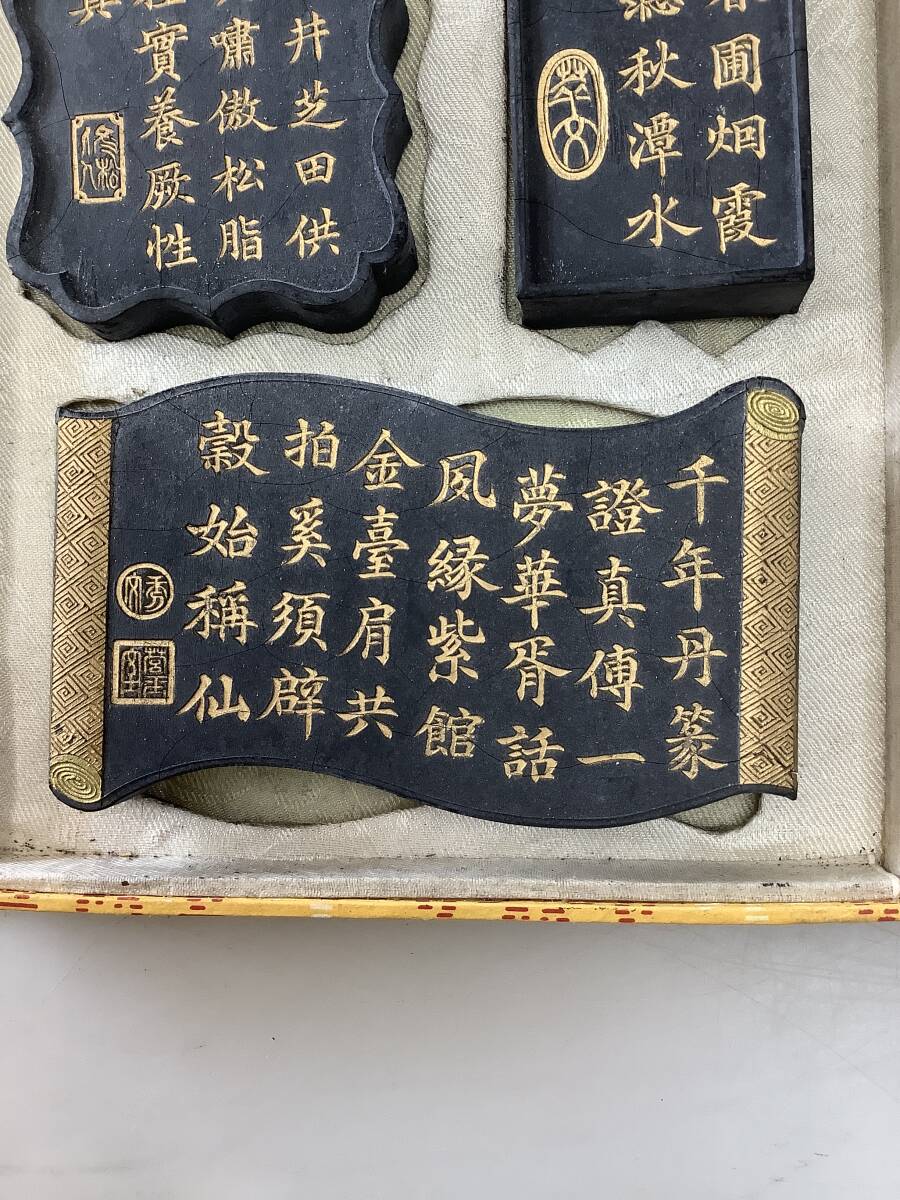 井芝田供
嘯傲松脂
實養厥性
圃炯霞
秋潭水
萃文
千年丹篆
證真傳一
夢華胥話
夙縁紫館
金臺肩共
拍奚須辟
穀始稱仙